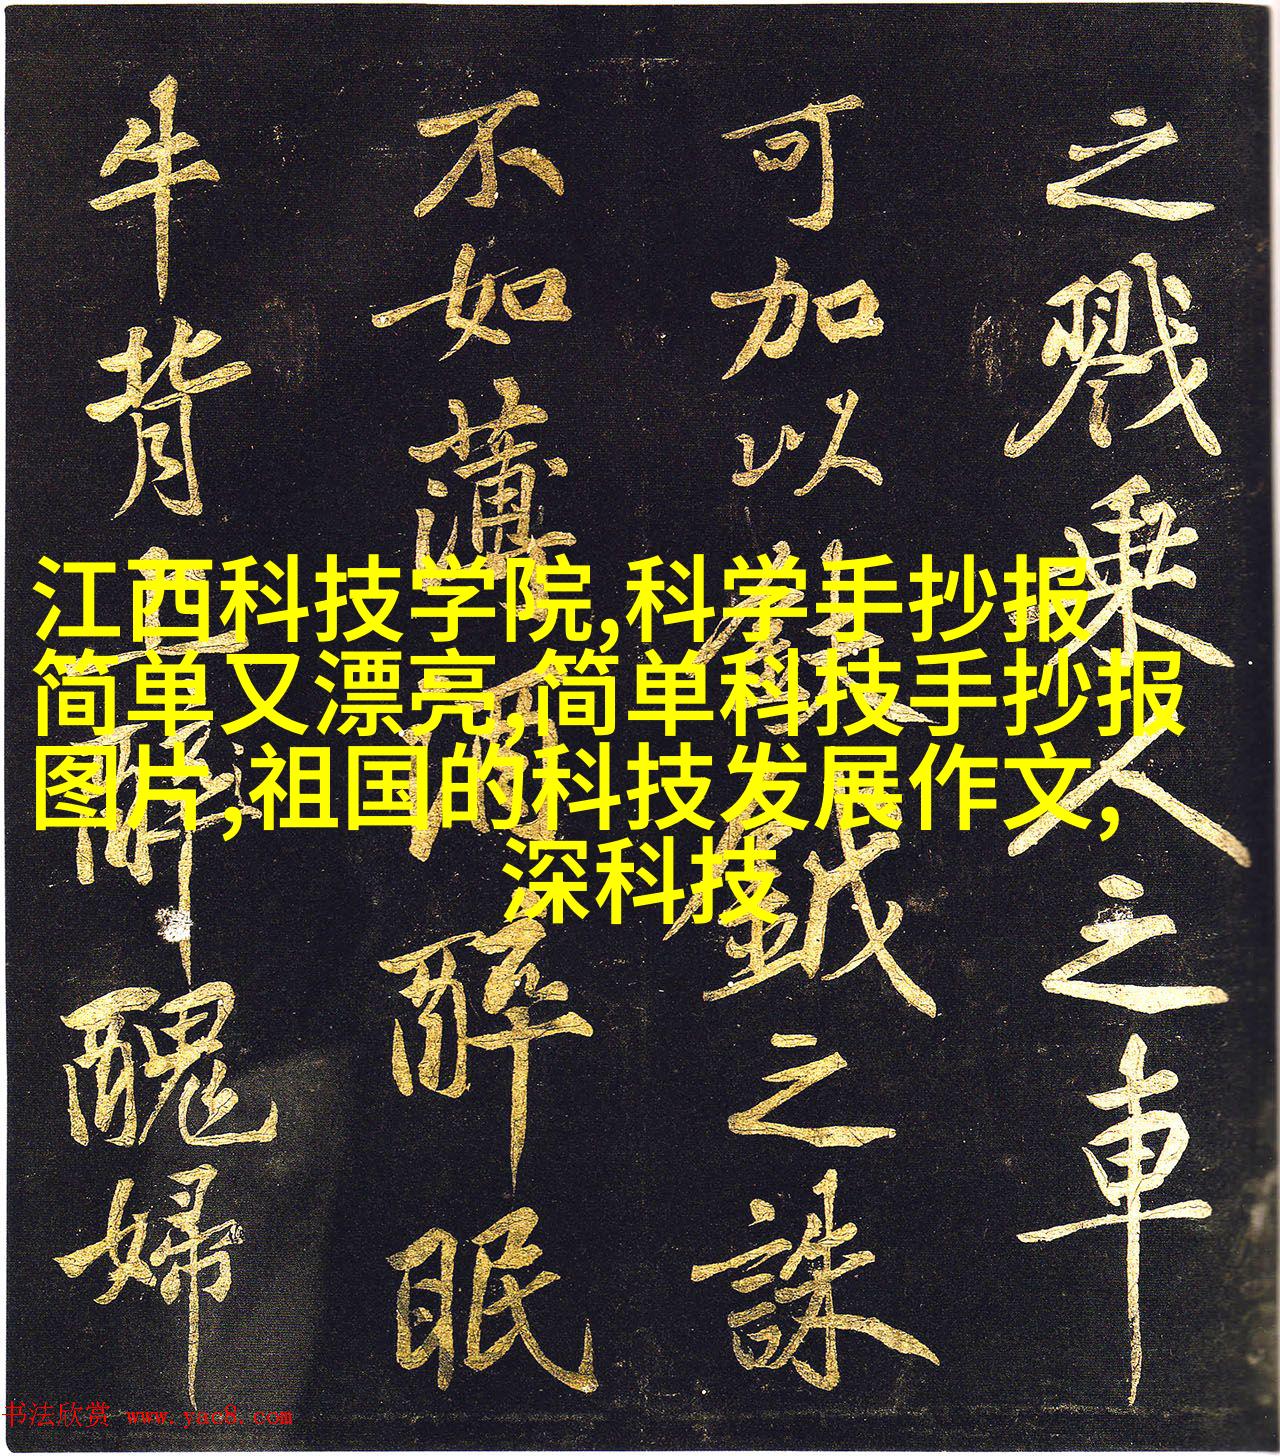 之戮乘人之車
可加以鉞之誅
不如薄酒醉眠
牛背上醉醜婦
江西科技学院,科学手抄报
简单又漂亮,简单科技手抄报
图片,祖国的科技发展作文,
深科技
书法欣赏 www.yac8.com